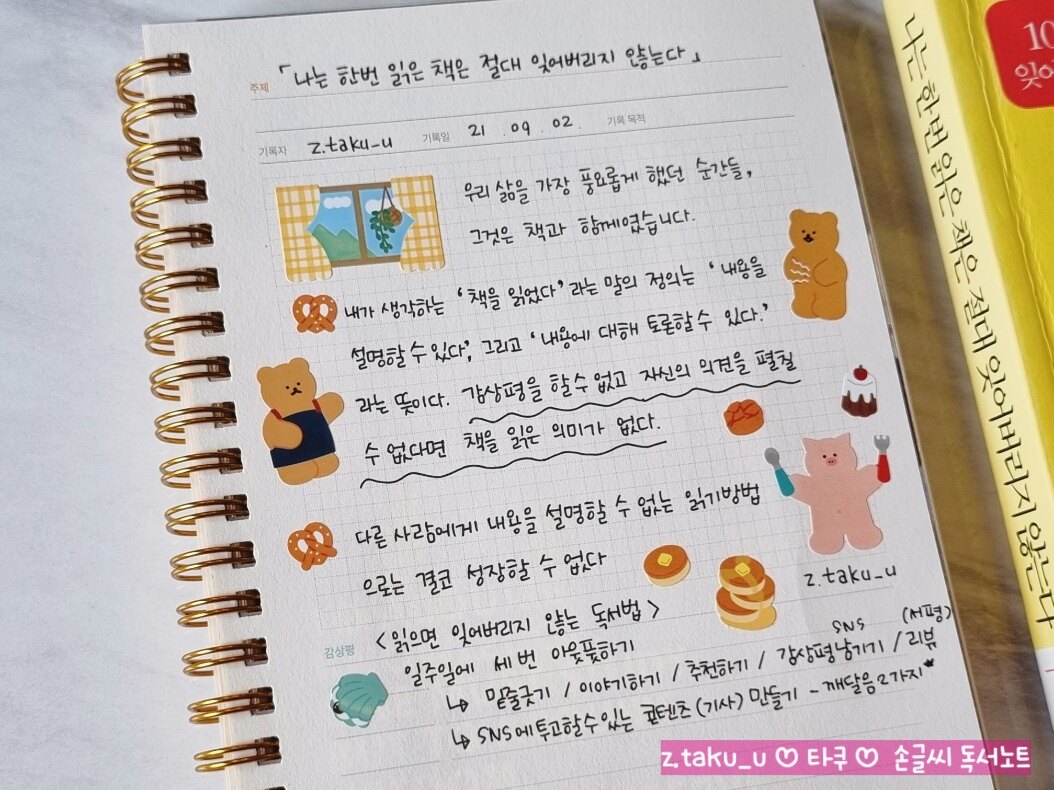 주제 「나는 한번 읽은 책은 절대 잊어버리지 않는다」
기록자 z.taku_u 기록일 21 . 09 . 02. 기록 목적
우리 삶을 가장 풍요롭게 했던 순간들,
그것은 책과 함께였습니다.
내가 생각하는 ‘책을 읽었다’ 라는 말의 정의는 ‘내용을
설명할 수 있다’, 그리고 ‘내용에 대해 토론할 수 있다.’
라는 뜻이다. 감상평을 할 수 없고 자신의 의견을 펼칠
수 없다면 책을 읽은 의미가 없다.
다른 사람에게 내용을 설명할 수 없는 읽기방법
으로는 결코 성장할 수 없다
z.taku_u
<읽으면 잊어버리지 않는 독서법>
감상평 일주일에 세 번 아웃풋하기
SNS (서평)
↳ 밑줄긋기 / 이야기하기 / 추천하기 / 감상평남기기 / 리뷰
↳ SNS에 투고할 수 있는 콘텐츠(기사) 만들기 - 깨달음 2가지*
z.taku_u ♡ 타쿠 ♡ 손글씨 독서노트
나는 한번 읽은 책은 절대 잊어버리지 않는다
10